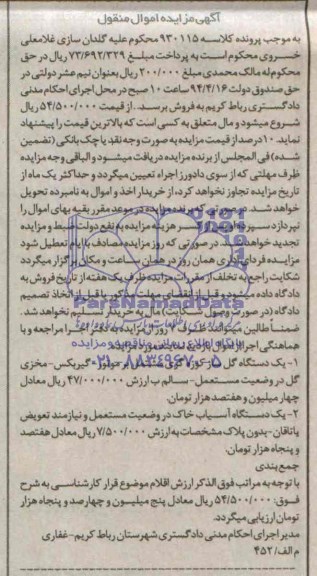 آگهی مزایده اموال منقول
به موجب پرونده کلاسه ۹۳۰۱۱۵ محکوم علیه گلدان سازی غلامعلی
خسروی محکوم است به پرداخت مبلغ ۷۳/۶۹۲/۳۲۹ ریال در حق
محکوم له مالک محمدی مبلغ ۲۰۰/۰۰۰ ریال بعنوان نیم عشر دولتی در
حق صندوق دولت ۹۴/۴/۱۶ ساعت ۱۰ صبح در محل اجرای احکام مدنی
دادگستری رباط کریم به فروش برسد. از قیمت ۵۴/۵۰۰/۰۰۰ ریال
شروع میشود و مال متعلق به کسی است که بالاترین قیمت را پیشنهاد
نماید. ۱۰ درصد از قیمت مزایده به صورت وجه نقد یا چک بانکی (تضمین
شده) فی المجلس از برنده مزایده دریافت میشود و الباقی وجه مزایده
ظرف مهلتی که از سوی دادورز اجراء تعیین میگردد و حداکثر یک ماه از
تاریخ مزایده تجاوز نخواهد کرد، از خریدار اخذ و اموال به نامبرده تحویل
خواهد شد. در صورتی که برنده مزایده در موعد مقرر بقیه بهای اموال را
نپردازد سپرده او پس از کسر هزینه مزایده به نفع دولت ضبط و مزایده
تجدید خواهد شد. در صورتی که روز مزایده مصادف با ایام تعطیل شود
مزایده فردای اداری همان روز در همان ساعت و مکان برگزار میگردد
شکایت راجع به تخلف از مقررات مزایده ظرف یک هفته از تاریخ فروش به
دادگاه داده میشود و قبل از انقضای مهلت مذکور یا قبل از اتخاذ تصمیم
دادگاه (در صورت وصول شکایت) مال به خریدار تسلیم نخواهد شد.
ضمناً طالبین میتوانند ظرف ۷ روز از مزایده به دفتر اجرا مراجعه و با
هماهنگی اجرا از اموال
ParsNamadData
پایگاه اطلاع رسانی مناقصه و مزایده
۰۲۱-۸۸۳۴۹۶۷۰-۵
۱- یک دستگاه گل
گیربکس- مخزی
گل در وضعیت مستعمل- سالم ب ارزش ۴۷/۰۰۰/۰۰۰ ریال معادل
چهار میلیون و هفتصد هزار تومان.
۲- یک دستگاه آسیاب خاک در وضعیت مستعمل و نیازمند تعویض
یاتاقان- بدون پلاک مشخصات به ارزش ۷/۵۰۰/۰۰۰ ریال معادل هفتصد
و پنجاه هزار تومان.
جمع بندی
با توجه به مراتب فوق الذکر ارزش اقلام موضوع قرار کارشناسی به شرح
فوق: ۵۴/۵۰۰/۰۰۰ ریال معادل پنج میلیون و چهارصد و پنجاه هزار
تومان ارزیابی میگردد.
مدیر اجرای احکام مدنی دادگستری شهرستان رباط کریم- غفاری
م الف/ ۴۵۲